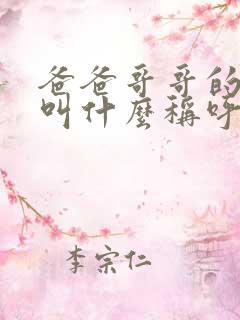 爸爸哥哥的
叫什麼稱呼
李宗仁